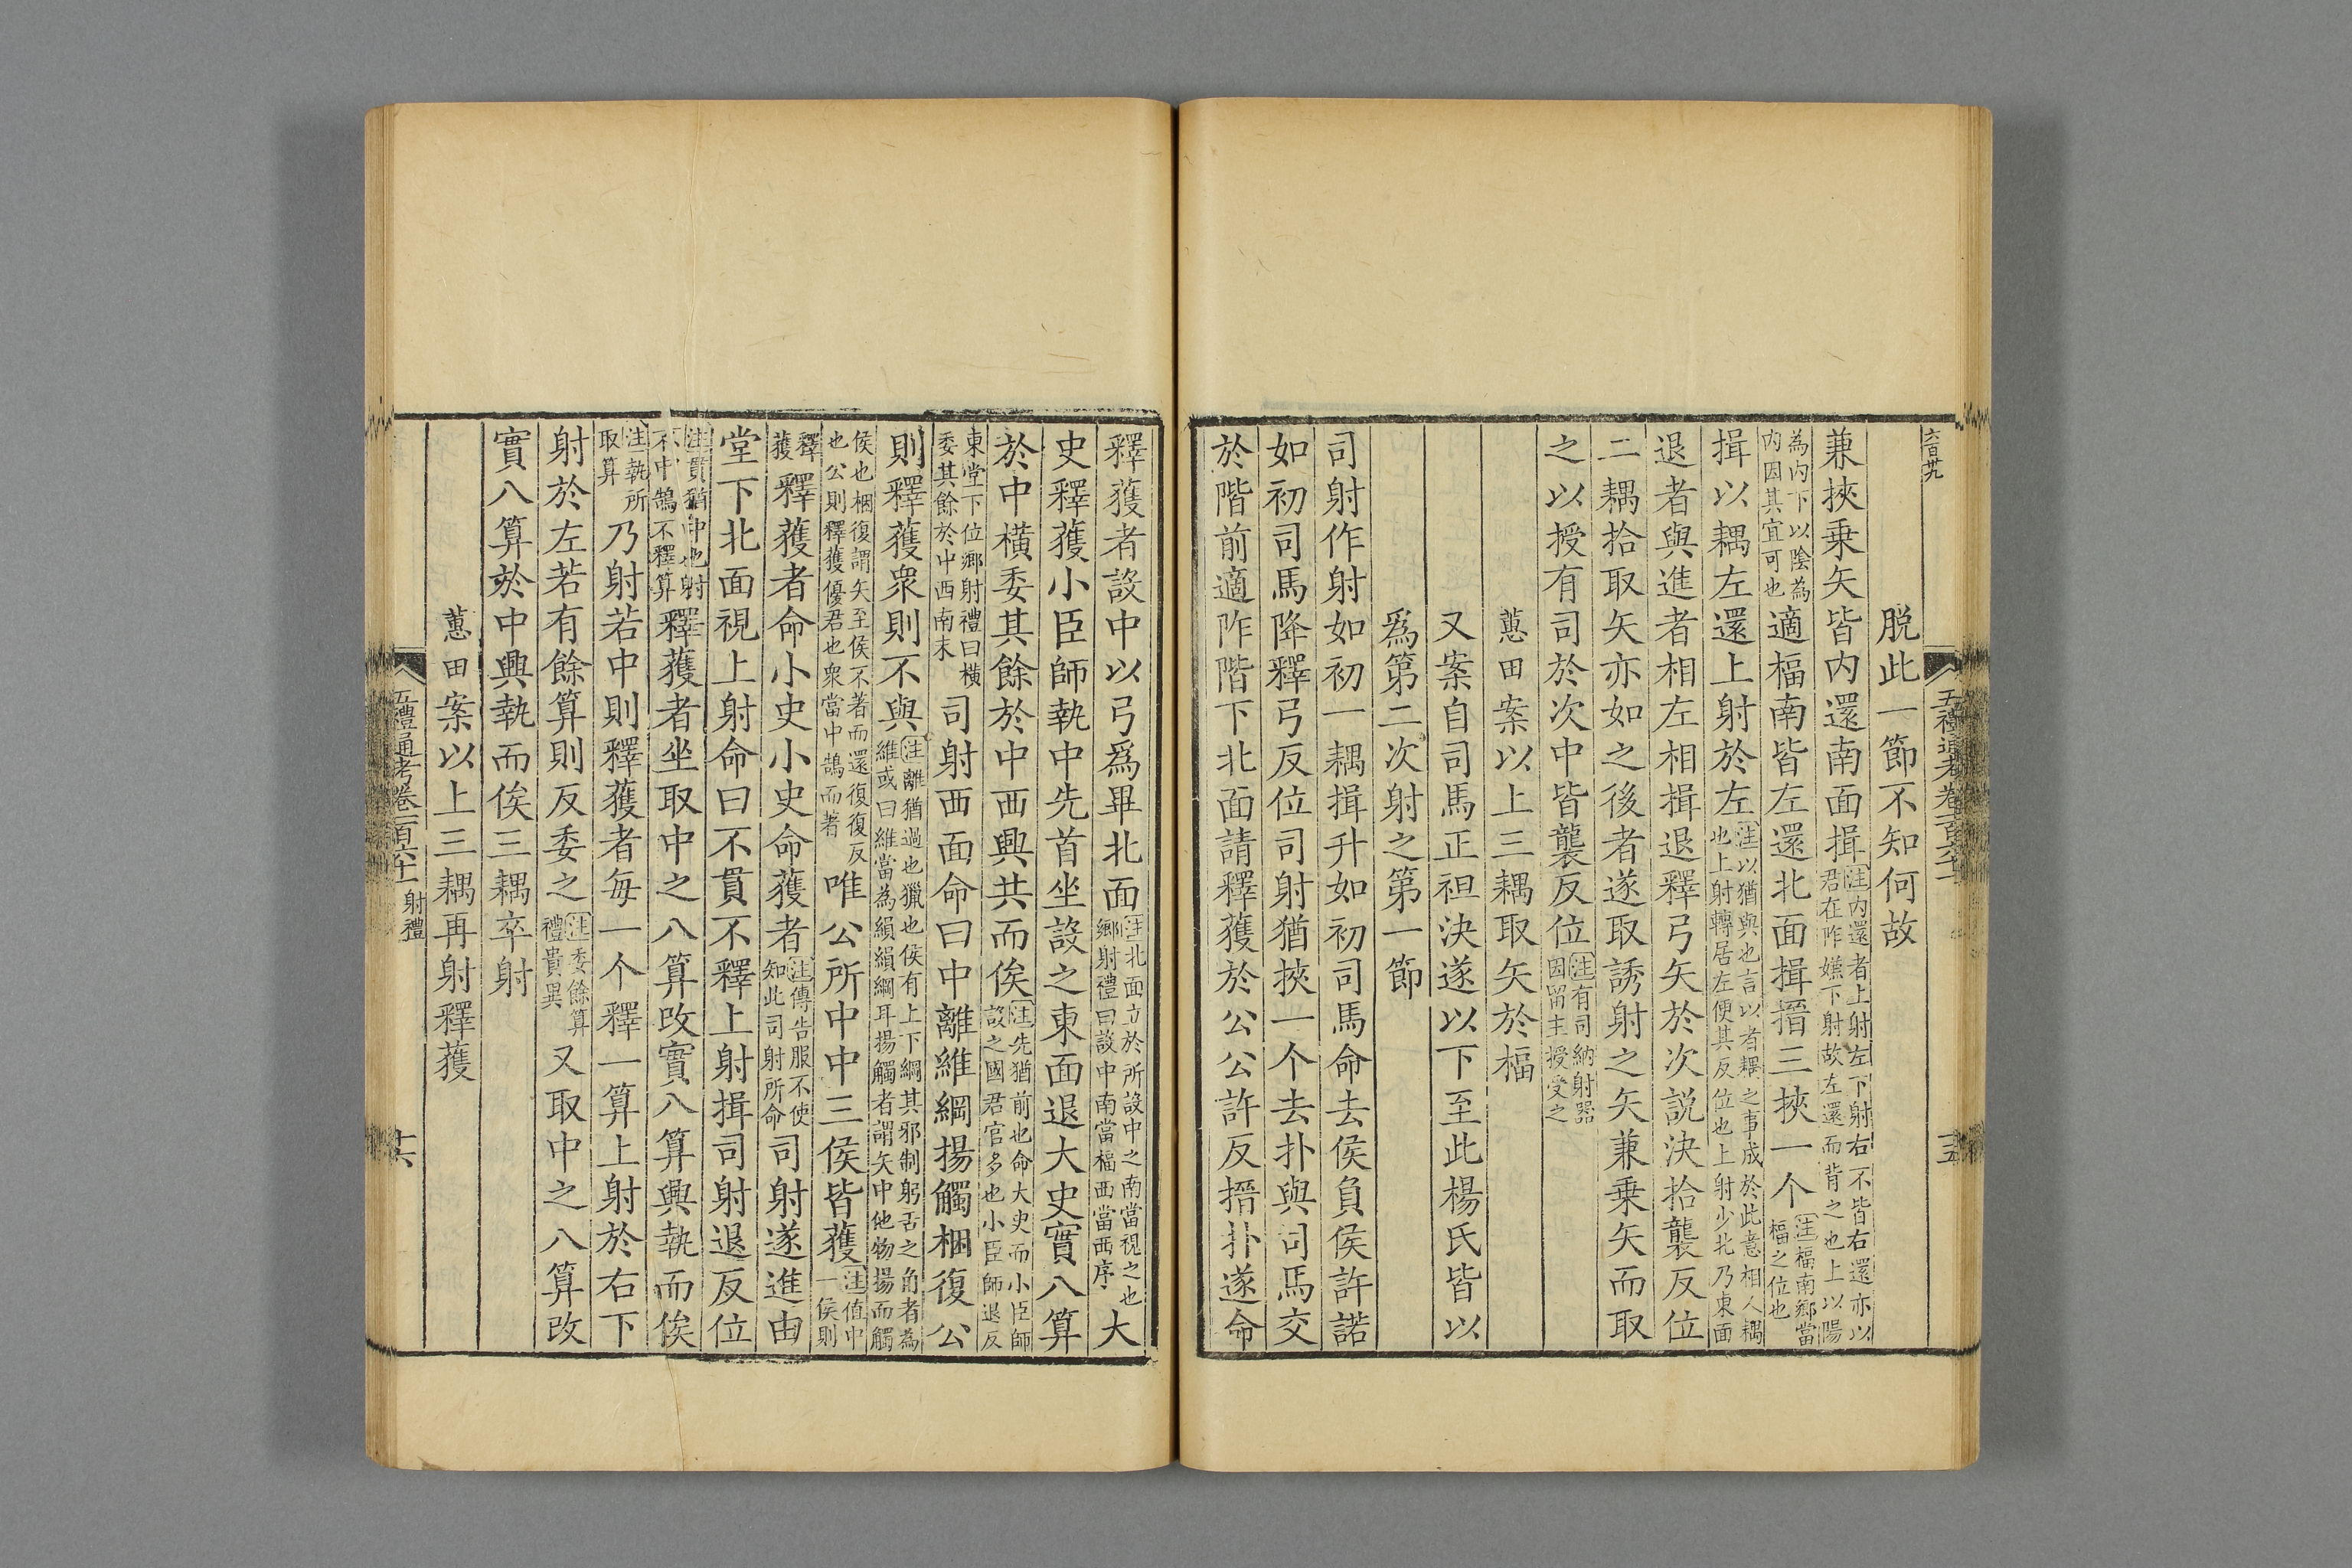 五禮通考卷一百六十一
脱此一節不知何故
兼挾乗矢皆内還南面揖注内還者上射左下射右不皆右還亦以君在阼嫌下射故左還而背之也上以陽
為内下以陰為内因其宜可也適楅南皆左還北面揖搢三挾一个注楅南鄉當楅之位也
揖以耦左還上射於左注以猶與也言以者耦之事成於此意相人耦也上射轉居左便其反位也上射少北乃東面
退者與進者相左相揖退釋弓矢於次説決拾襲反位
二耦拾取矢亦如之後者遂取誘射之矢兼乗矢而取
之以授有司於次中皆襲反位注有司納射器因留主授受之
蕙田案以上三耦取矢於楅
又案自司馬正袒決遂以下至此楊氏皆以
爲第二次射之第一節
司射作射如初一耦揖升如初司馬命去侯負侯許諾
如初司馬降釋弓反位司射猶挾一个去扑與司馬交
於階前適阼階下北面請釋獲於公公許反搢扑遂命
釋獲者設中以弓爲畢北面注北面立於所設中之南當視之也鄉射禮曰設中南當楅西當西序大
史釋獲小臣師執中先首坐設之東面退大史實八算
於中横委其餘於中西興共而俟注先猶前也命大史而小臣師設之國君官多也小臣師退反
東堂下位鄉射禮曰横委其餘於中西南末司射西面命曰中離維綱揚觸梱復公
則釋獲衆則不與注離猶過也獵也侯有上下綱其邪制躬舌之角者為維或曰維當為絹絹綱耳揚觸者謂矢中他物揚而觸
侯也梱復謂矢至侯不著而還復復反也公則釋獲優君也衆當中鵠而著唯公所中中三侯皆獲注值中一侯則
釋獲釋獲者命小史小史命獲者注傳告服不使知此司射所命司射遂進由
堂下北面視上射命曰不貫不釋上射揖司射退反位
注貫猶中也射不中鵠不釋算釋獲者坐取中之八算改實八算興執而俟
注執所取算乃射若中則釋獲者毎一个釋一算上射於右下
射於左若有餘算則反委之注委餘算禮貴異又取中之八算改
實八算於中興執而俟三耦卒射
蕙田案以上三耦再射釋獲
五禮通考卷一百六十一 射禮